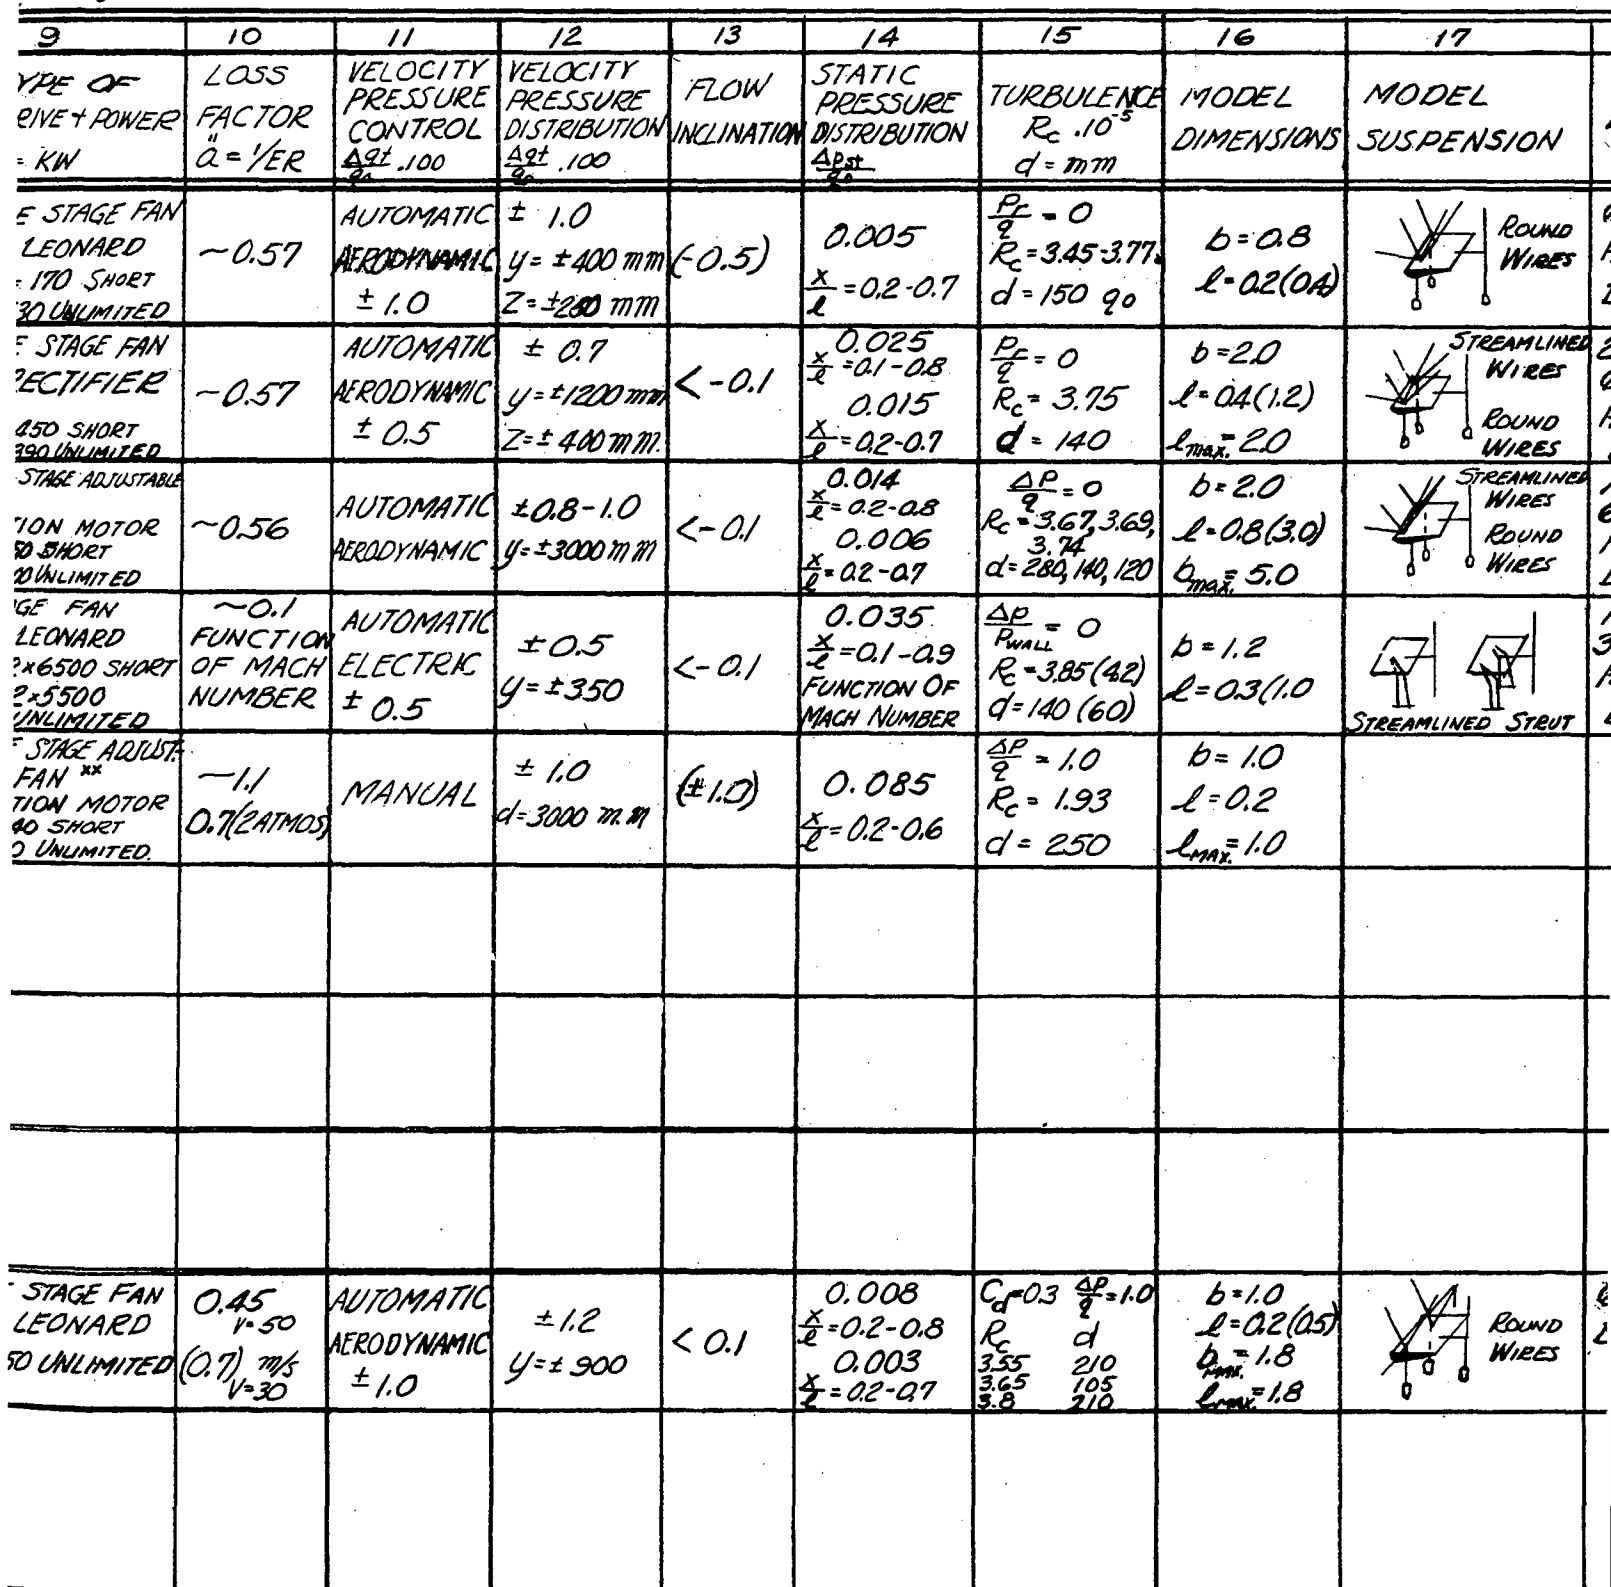 9 10 11 12 13 14 15 16 17
YPE OF
RIVE + POWER
= KW
LOSS
FACTOR
ä = 1/ER
VELOCITY
PRESSURE
CONTROL
Δqt/q₀ .100
VELOCITY
PRESSURE
DISTRIBUTION
Δqt/q₀ .100
FLOW
INCLINATION
STATIC
PRESSURE
DISTRIBUTION
Δpst/q₀
TURBULENCE
Rc .10⁻⁵
d = mm
MODEL
DIMENSIONS
MODEL
SUSPENSION
E STAGE FAN
LEONARD
= 170 SHORT
30 UNLIMITED
~0.57
AUTOMATIC
AERODYNAMIC
± 1.0
± 1.0
y = ±400 mm
Z = ±280 mm
(-0.5)
0.005
x/l = 0.2-0.7
Pr/q = 0
Rc = 3.45-3.77
d = 150 q₀
b = 0.8
l = 0.2(0.4)
ROUND
WIRES
E STAGE FAN
RECTIFIER
450 SHORT
390 UNLIMITED
~0.57
AUTOMATIC
AERODYNAMIC
± 0.5
± 0.7
y = ±1200 mm
Z = ±400 mm.
<-0.1
0.025
x/l = 0.1-0.8
0.015
x/l = 0.2-0.7
Pr/q = 0
Rc = 3.75
d = 140
b = 2.0
l = 0.4(1.2)
lmax. = 2.0
STREAMLINED
WIRES
ROUND
WIRES
STAGE ADJUSTABLE
TION MOTOR
50 SHORT
20 UNLIMITED
~0.56
AUTOMATIC
AERODYNAMIC
±0.8-1.0
y = ±3000 mm
<-0.1
0.014
x/l = 0.2-0.8
0.006
x/l = 0.2-0.7
ΔP/q = 0
Rc = 3.67, 3.69,
3.74
d = 280, 140, 120
b = 2.0
l = 0.8(3.0)
bmax. = 5.0
STREAMLINED
WIRES
ROUND
WIRES
GE FAN
LEONARD
2×6500 SHORT
2×5500
UNLIMITED
~0.1
FUNCTION
OF MACH
NUMBER
AUTOMATIC
ELECTRIC
± 0.5
± 0.5
y = ±350
<-0.1
0.035
x/l = 0.1-0.9
FUNCTION OF
MACH NUMBER
ΔP/PWALL = 0
Rc = 3.85(4.2)
d = 140 (60)
b = 1.2
l = 0.3(1.0
STREAMLINED STRUT
E STAGE ADJUST-
FAN xx
TION MOTOR
40 SHORT
0 UNLIMITED.
~1.1
0.7(2 ATMOS)
MANUAL
± 1.0
d = 3000 m.m
(±1.0)
0.085
x/l = 0.2-0.6
ΔP/q = 1.0
Rc = 1.93
d = 250
b = 1.0
l = 0.2
lMAX. = 1.0
STAGE FAN
LEONARD
50 UNLIMITED
0.45
V=50
(0.7) m/s
V=30
AUTOMATIC
AERODYNAMIC
± 1.0
± 1.2
y = ± 900
< 0.1
0.008
x/l = 0.2-0.8
0.003
x/l = 0.2-0.7
Cd=0.3 ΔP/q = 1.0
Rc d
3.55 210
3.65 105
3.8 210
b = 1.0
l = 0.2(0.5)
bmax. = 1.8
lmax. = 1.8
ROUND
WIRES